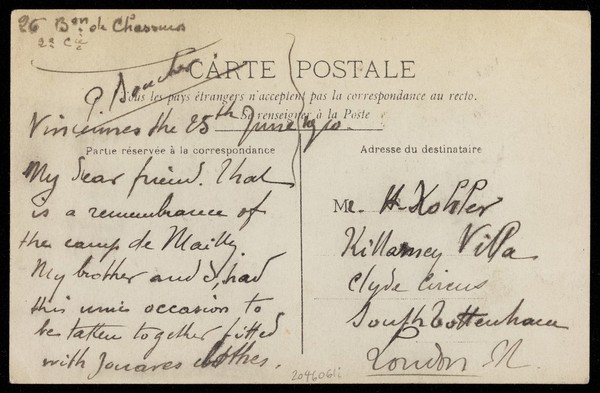 26 Bon de Chasseurs
2e Cie
G. Boucher
CARTE POSTALE
Tous les pays étrangers n'acceptent pas la correspondance au recto.
Se renseigner à la Poste
Vincennes the 25th June 1910.
Partie réservée à la correspondance
Adresse du destinataire
My dear friend. That
is a remembrance of
the camp de Mailly.
My brother and I, had
this unic occasion to
be taken together fitted
with zouaves clothes.
Mr. H. Kohler
Killarney Villa
Clyde Circus
South Tottenham
London N.
2046061i